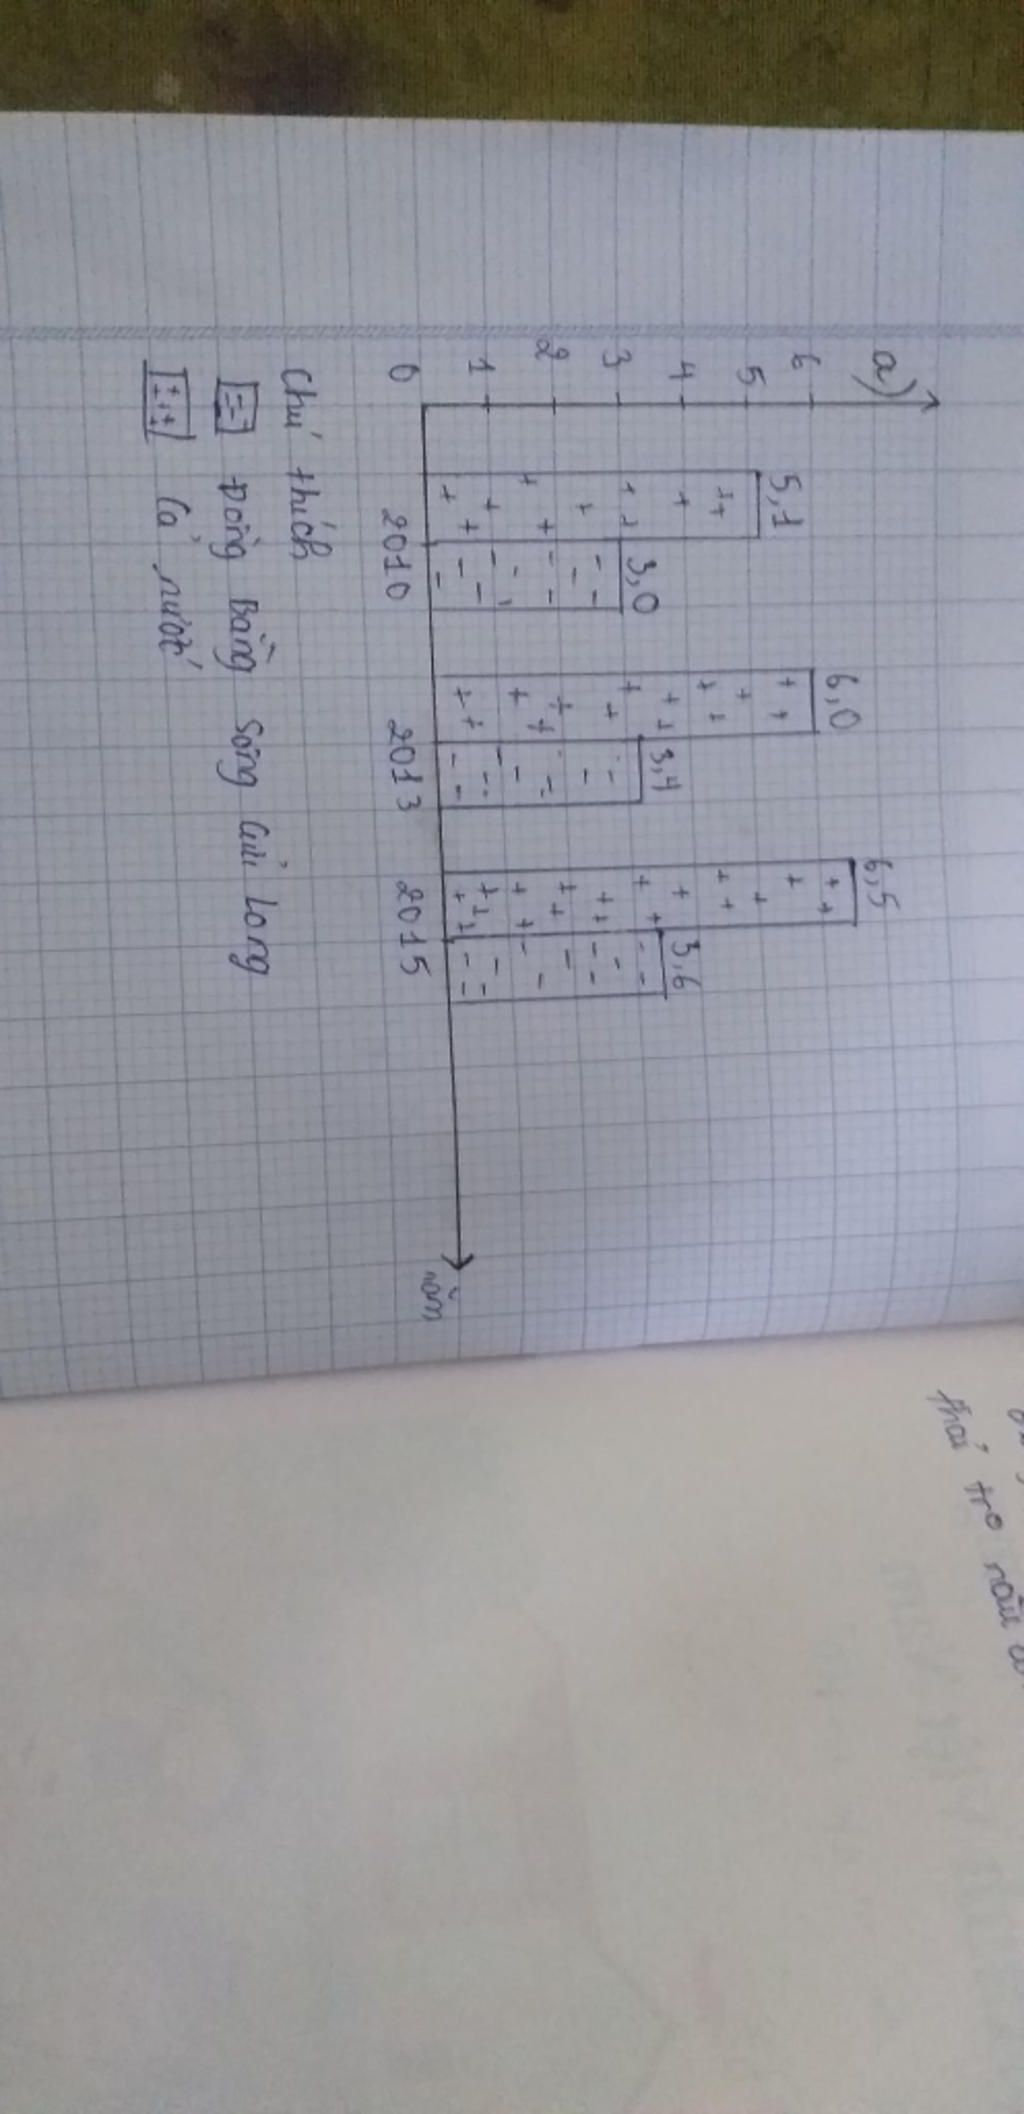 a)
6
5
4
3
2
1
0
5,1
3,0
6,0
3,4
6,5
3,6
2010
2013
2015
năm
Chú thích
Đồng Bằng Sông Cửu Long
Cả nước
thái tro nấu